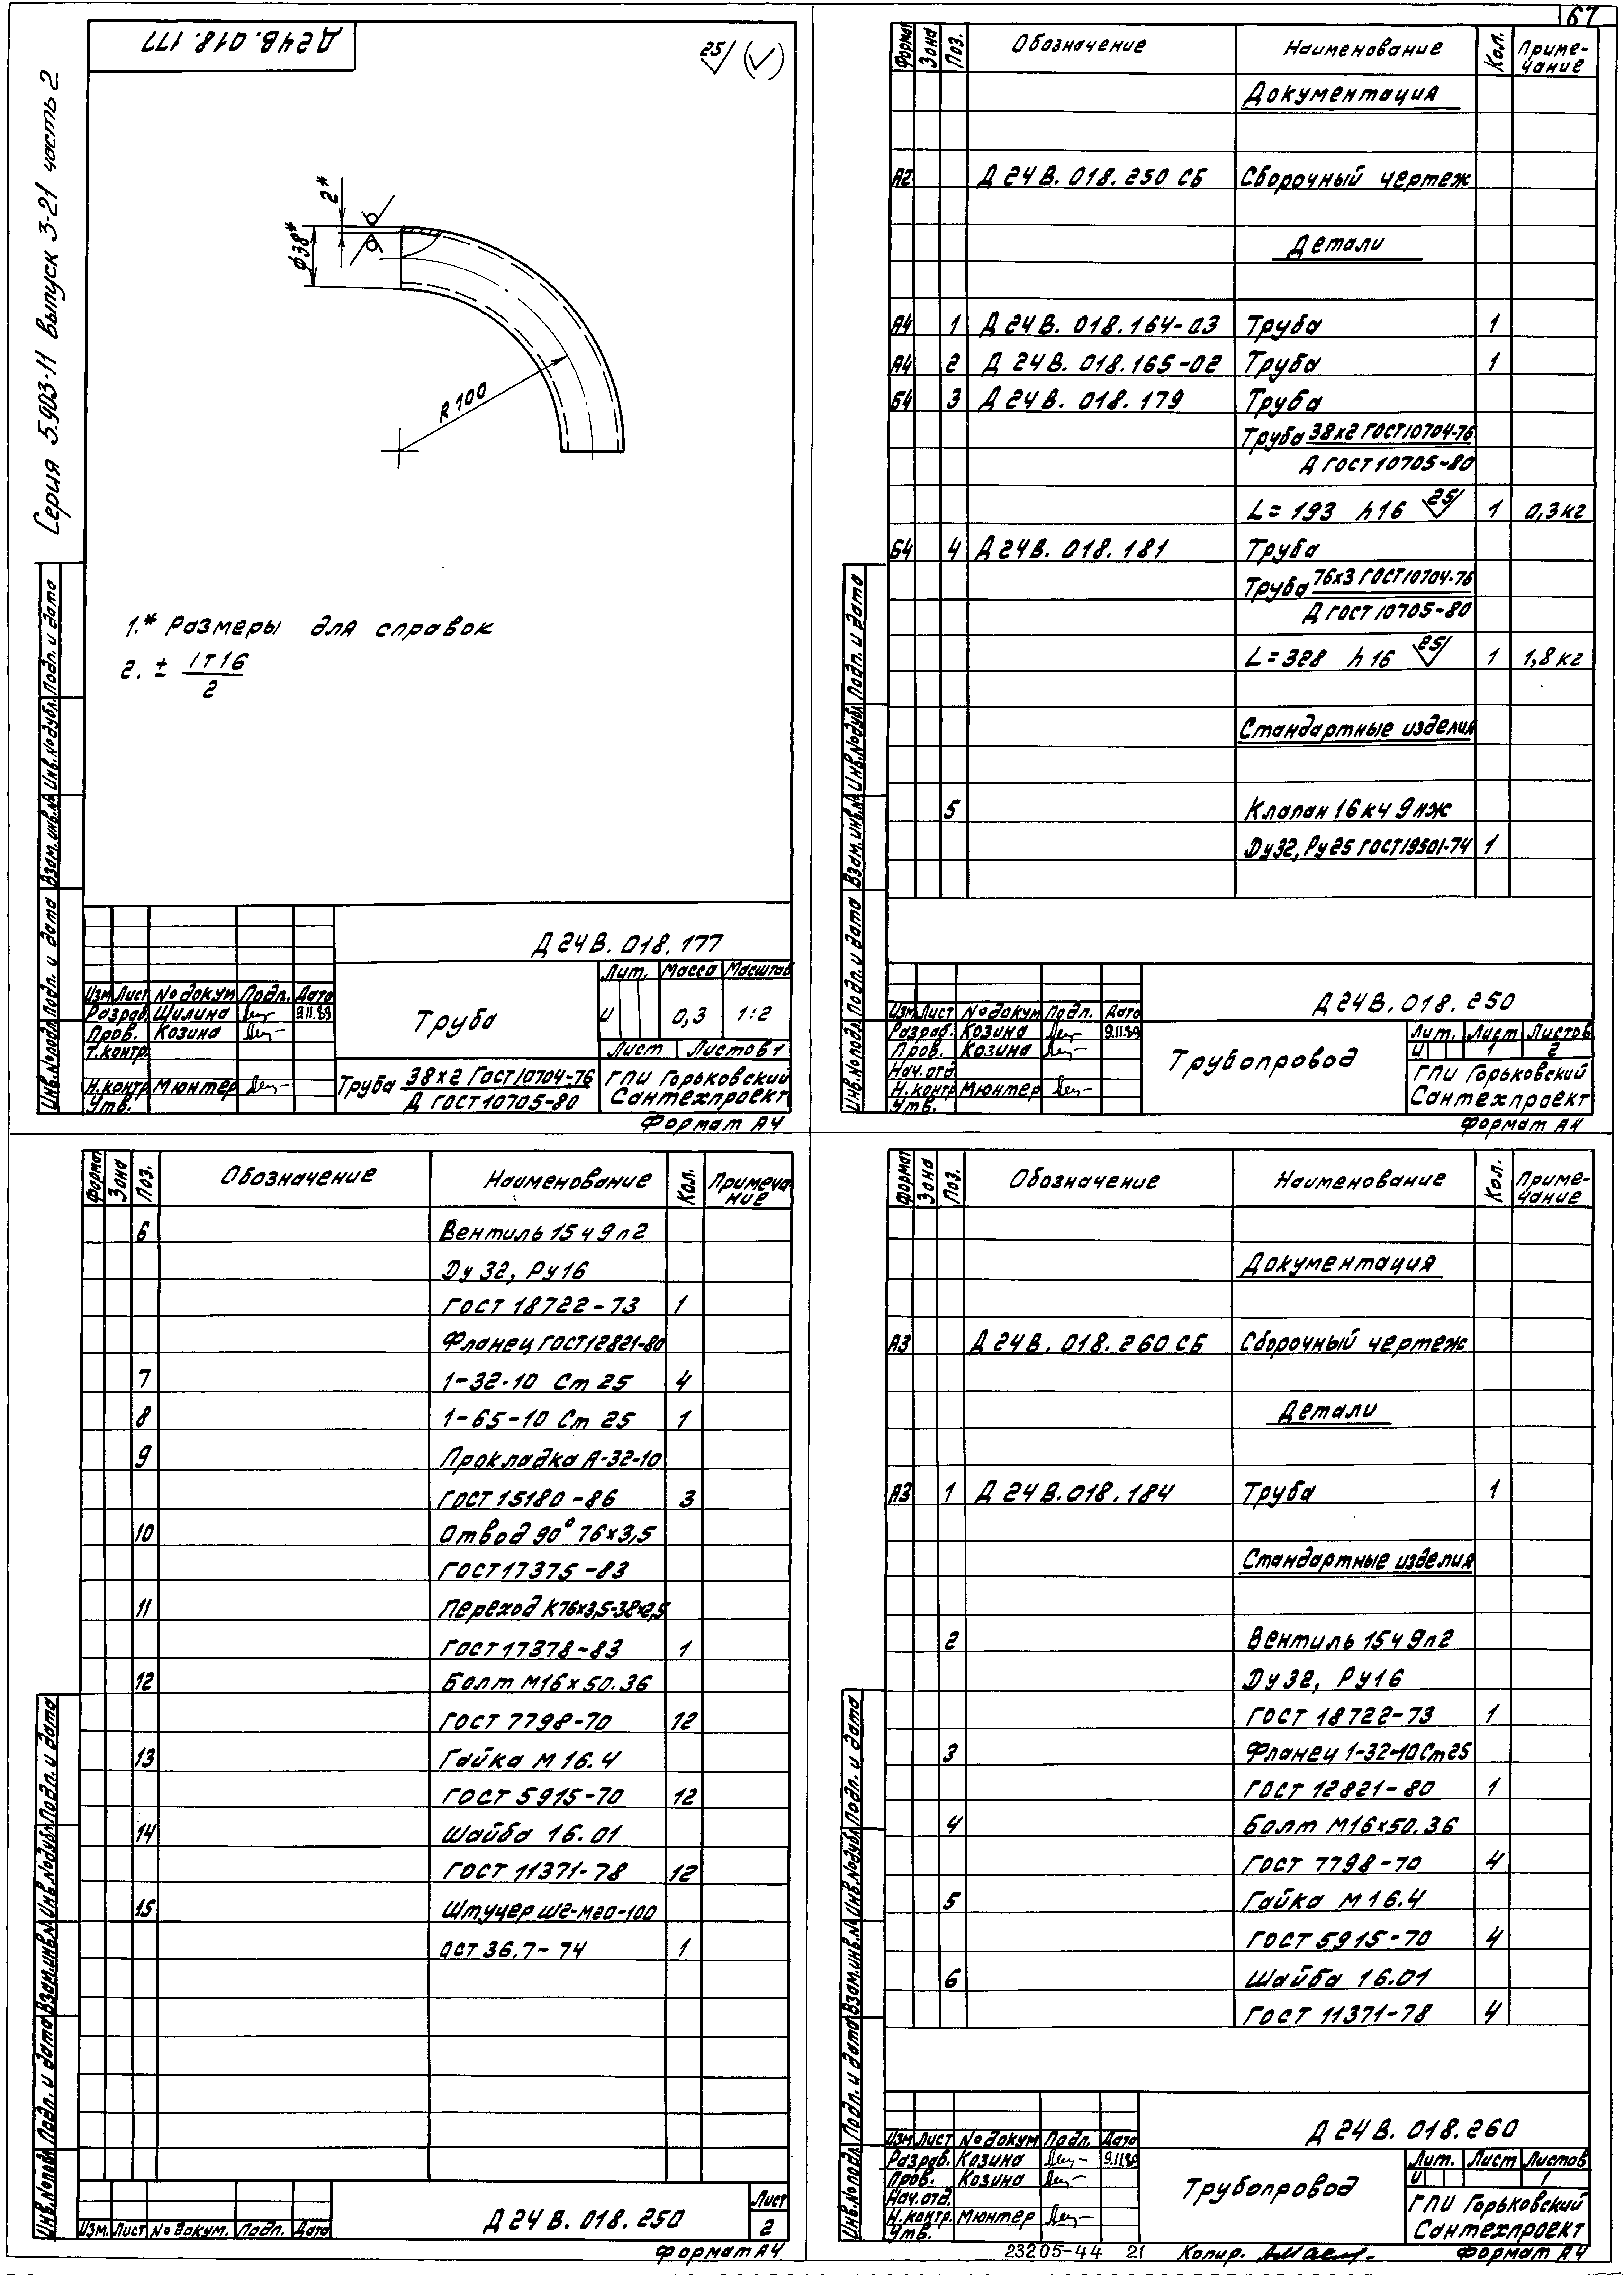 67
Серия 5.903-11 Выпуск 3-21 часть 2
Д24В.018.177
25 (√)
2*
ф38*
R100
1.* Размеры для справок
2. ± IT16
2
Инв.№подл. Подп. и дата Взам.инв.№ Инв.№дубл. Подп. и дата
Д24В.018.177
Лит. Масса Масштаб
Изм Лист №докум Подп. Дата
Разраб. Шилина 9.11.89
Пров. Козина
Т.контр.
Н.контр Мюнтер
Утв.
Труба
и 0,3 1:2
Лист Листов 1
Труба 38х2 ГОСТ10704-76
Д ГОСТ10705-80
ГПИ Горьковский
Сантехпроект
Формат А4
Формат Зона Поз. Обозначение Наименование Кол. Приме-
чание
Документация
А2 Д24В.018.250 СБ Сборочный чертеж
Детали
А4 1 Д24В.018.164-03 Труба 1
А4 2 Д24В.018.165-02 Труба 1
Б4 3 Д24В.018.179 Труба
Труба 38х2 ГОСТ10704-76
Д ГОСТ10705-80
L=193 h16 25 1 0,3кг
Б4 4 Д24В.018.181 Труба
Труба 76х3 ГОСТ10704-76
Д ГОСТ10705-80
L=328 h16 25 1 1,8кг
Стандартные изделия
5 Клапан 16кч9нж
Dу32, Ру25 ГОСТ19501-74 1
Инв.№подл. Подп. и дата Взам.инв.№ Инв.№дубл. Подп. и дата
Д24В.018.250
Изм Лист №докум Подп. Дата
Разраб. Козина 9.11.89
Пров. Козина
Нач.отд
Н.контр Мюнтер
Утв.
Трубопровод
Лит. Лист Листов
и 1 2
ГПИ Горьковский
Сантехпроект
Формат А4
Формат Зона Поз. Обозначение Наименование Кол. Примеча-
ние
6 Вентиль 15ч9п2
Dу32, Ру16
ГОСТ 18722-73 1
Фланец ГОСТ12821-80
7 1-32-10 Ст 25 4
8 1-65-10 Ст 25 1
9 Прокладка А-32-10
ГОСТ 15180-86 3
10 Отвод 90° 76х3,5
ГОСТ17375-83
11 Переход К76х3,5-38х2,5
ГОСТ17378-83 1
12 Болт М16х50.36
ГОСТ 7798-70 12
13 Гайка М16.4
ГОСТ 5915-70 12
14 Шайба 16.01
ГОСТ 11371-78 12
15 Штуцер Ш2-М20-100
ОСТ 36.7-74 1
Инв.№подл. Подп. и дата Взам.инв.№ Инв.№дубл. Подп. и дата
Изм. Лист №докум. Подп. Дата
Д24В.018.250
Лист
2
Формат А4
Формат Зона Поз. Обозначение Наименование Кол. Приме-
чание
Документация
А3 Д24В.018.260 СБ Сборочный чертеж
Детали
А3 1 Д24В.018.184 Труба 1
Стандартные изделия
2 Вентиль 15ч9п2
Dу32, Ру16
ГОСТ 18722-73 1
3 Фланец 1-32-10 Ст25
ГОСТ 12821-80 1
4 Болт М16х50.36
ГОСТ 7798-70 4
5 Гайка М16.4
ГОСТ 5915-70 4
6 Шайба 16.01
ГОСТ 11371-78 4
Инв.№подл. Подп. и дата Взам.инв.№ Инв.№дубл. Подп. и дата
Д24В.018.260
Изм Лист №докум Подп. Дата
Разраб. Козина 9.11.89
Пров. Козина
Нач.отд.
Н.контр. Мюнтер
Утв.
Трубопровод
Лит. Лист Листов
и 1
ГПИ Горьковский
Сантехпроект
23205-44 21 Копир. Формат А4